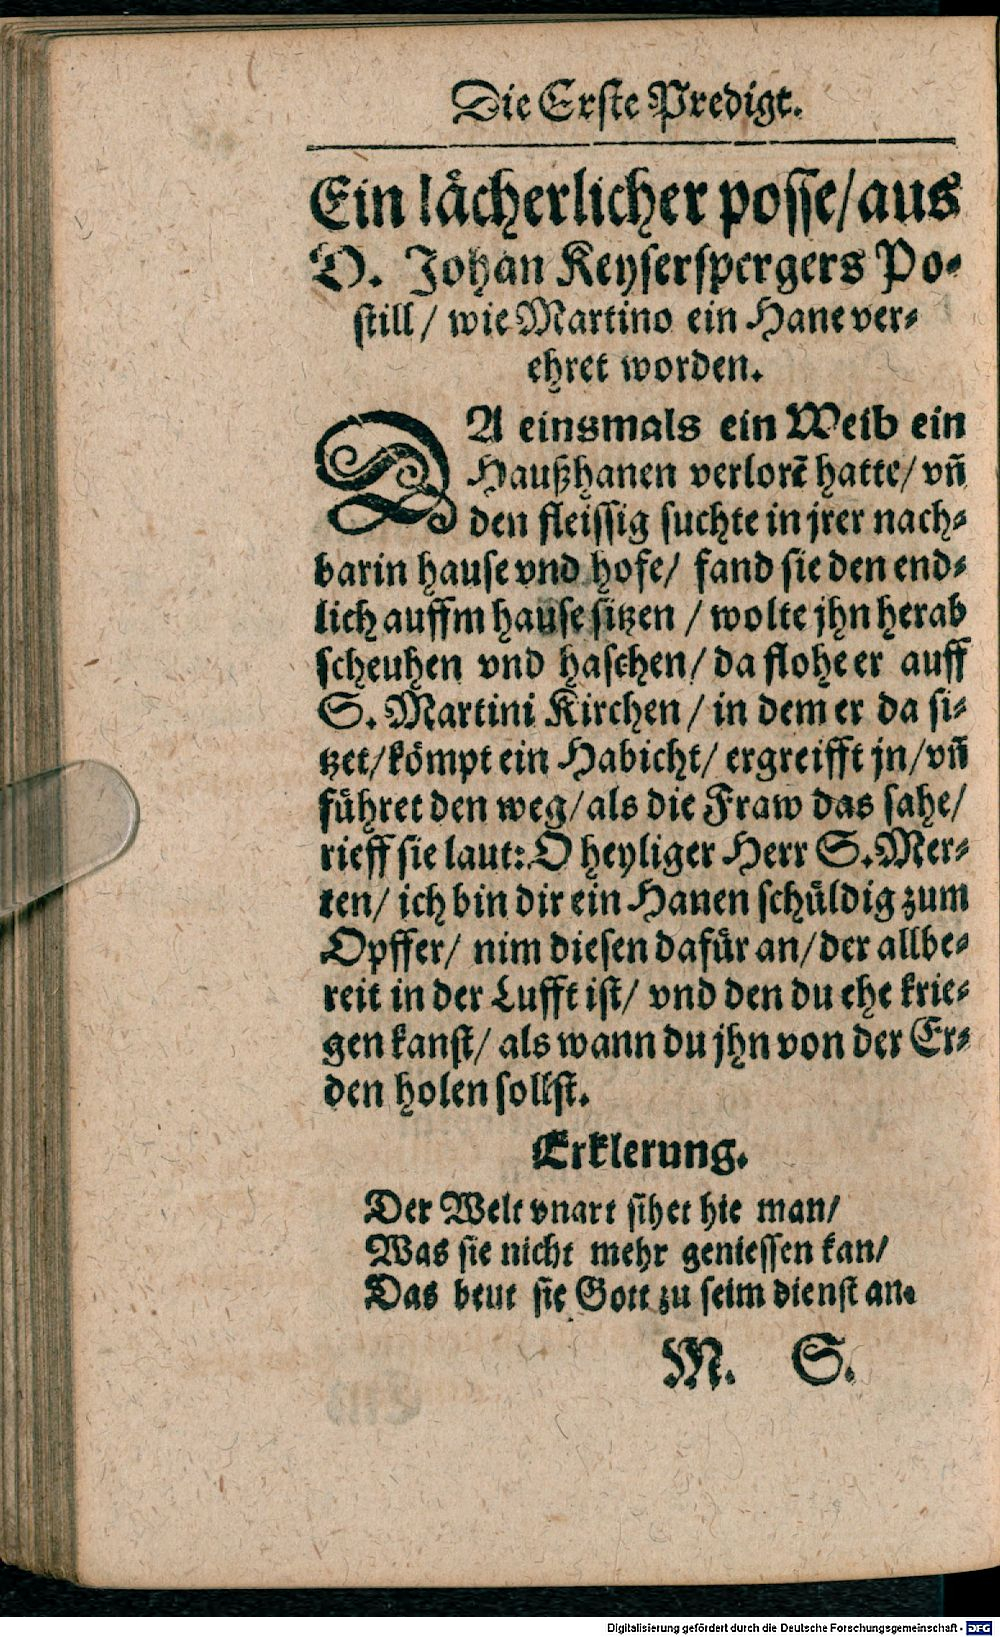 Die Erste Predigt.
Ein laͤcherlicher posse/aus
D. Johan Keyserspergers Po-
still/ wie Martino ein Hane ver-
ehret worden.
DA einsmals ein Weib ein
Haußhanen verlorē hatte/ vn̄
den fleissig suchte in jrer nach-
barin hause vnd hofe/ fand sie den end-
lich auffm hause sitzen / wolte jhn herab
scheuhen vnd haschen/ da flohe er auff
S. Martini Kirchen / in dem er da si-
tzet/koͤmpt ein Habicht/ ergreifft jn/vn̄
fuͤhret den weg/als die Fraw das sahe/
rieff sie laut: O heyliger Herr S. Mer-
ten/ ich bin dir ein Hanen schuͤldig zum
Opffer/ nim diesen dafuͤr an/der allbe-
reit in der Lufft ist/ vnd den du ehe krie-
gen kanst/ als wann du jhn von der Er-
den holen sollst.
Erklerung.
Der Welt vnart sihet hie man/
Was sie nicht mehr geniessen kan/
Das beut sie Gott zu seim dienst an.
M. S.
Digitalisierung gefördert durch die Deutsche Forschungsgemeinschaft - DFG